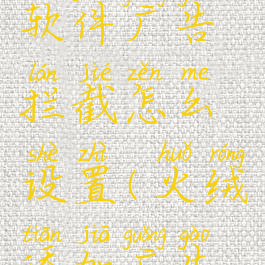 软件广告
lán jié zěn me
拦截怎么
shè zhì ( huǒ róng
设置(火绒
tiān jiā guǎng gào
添加广告